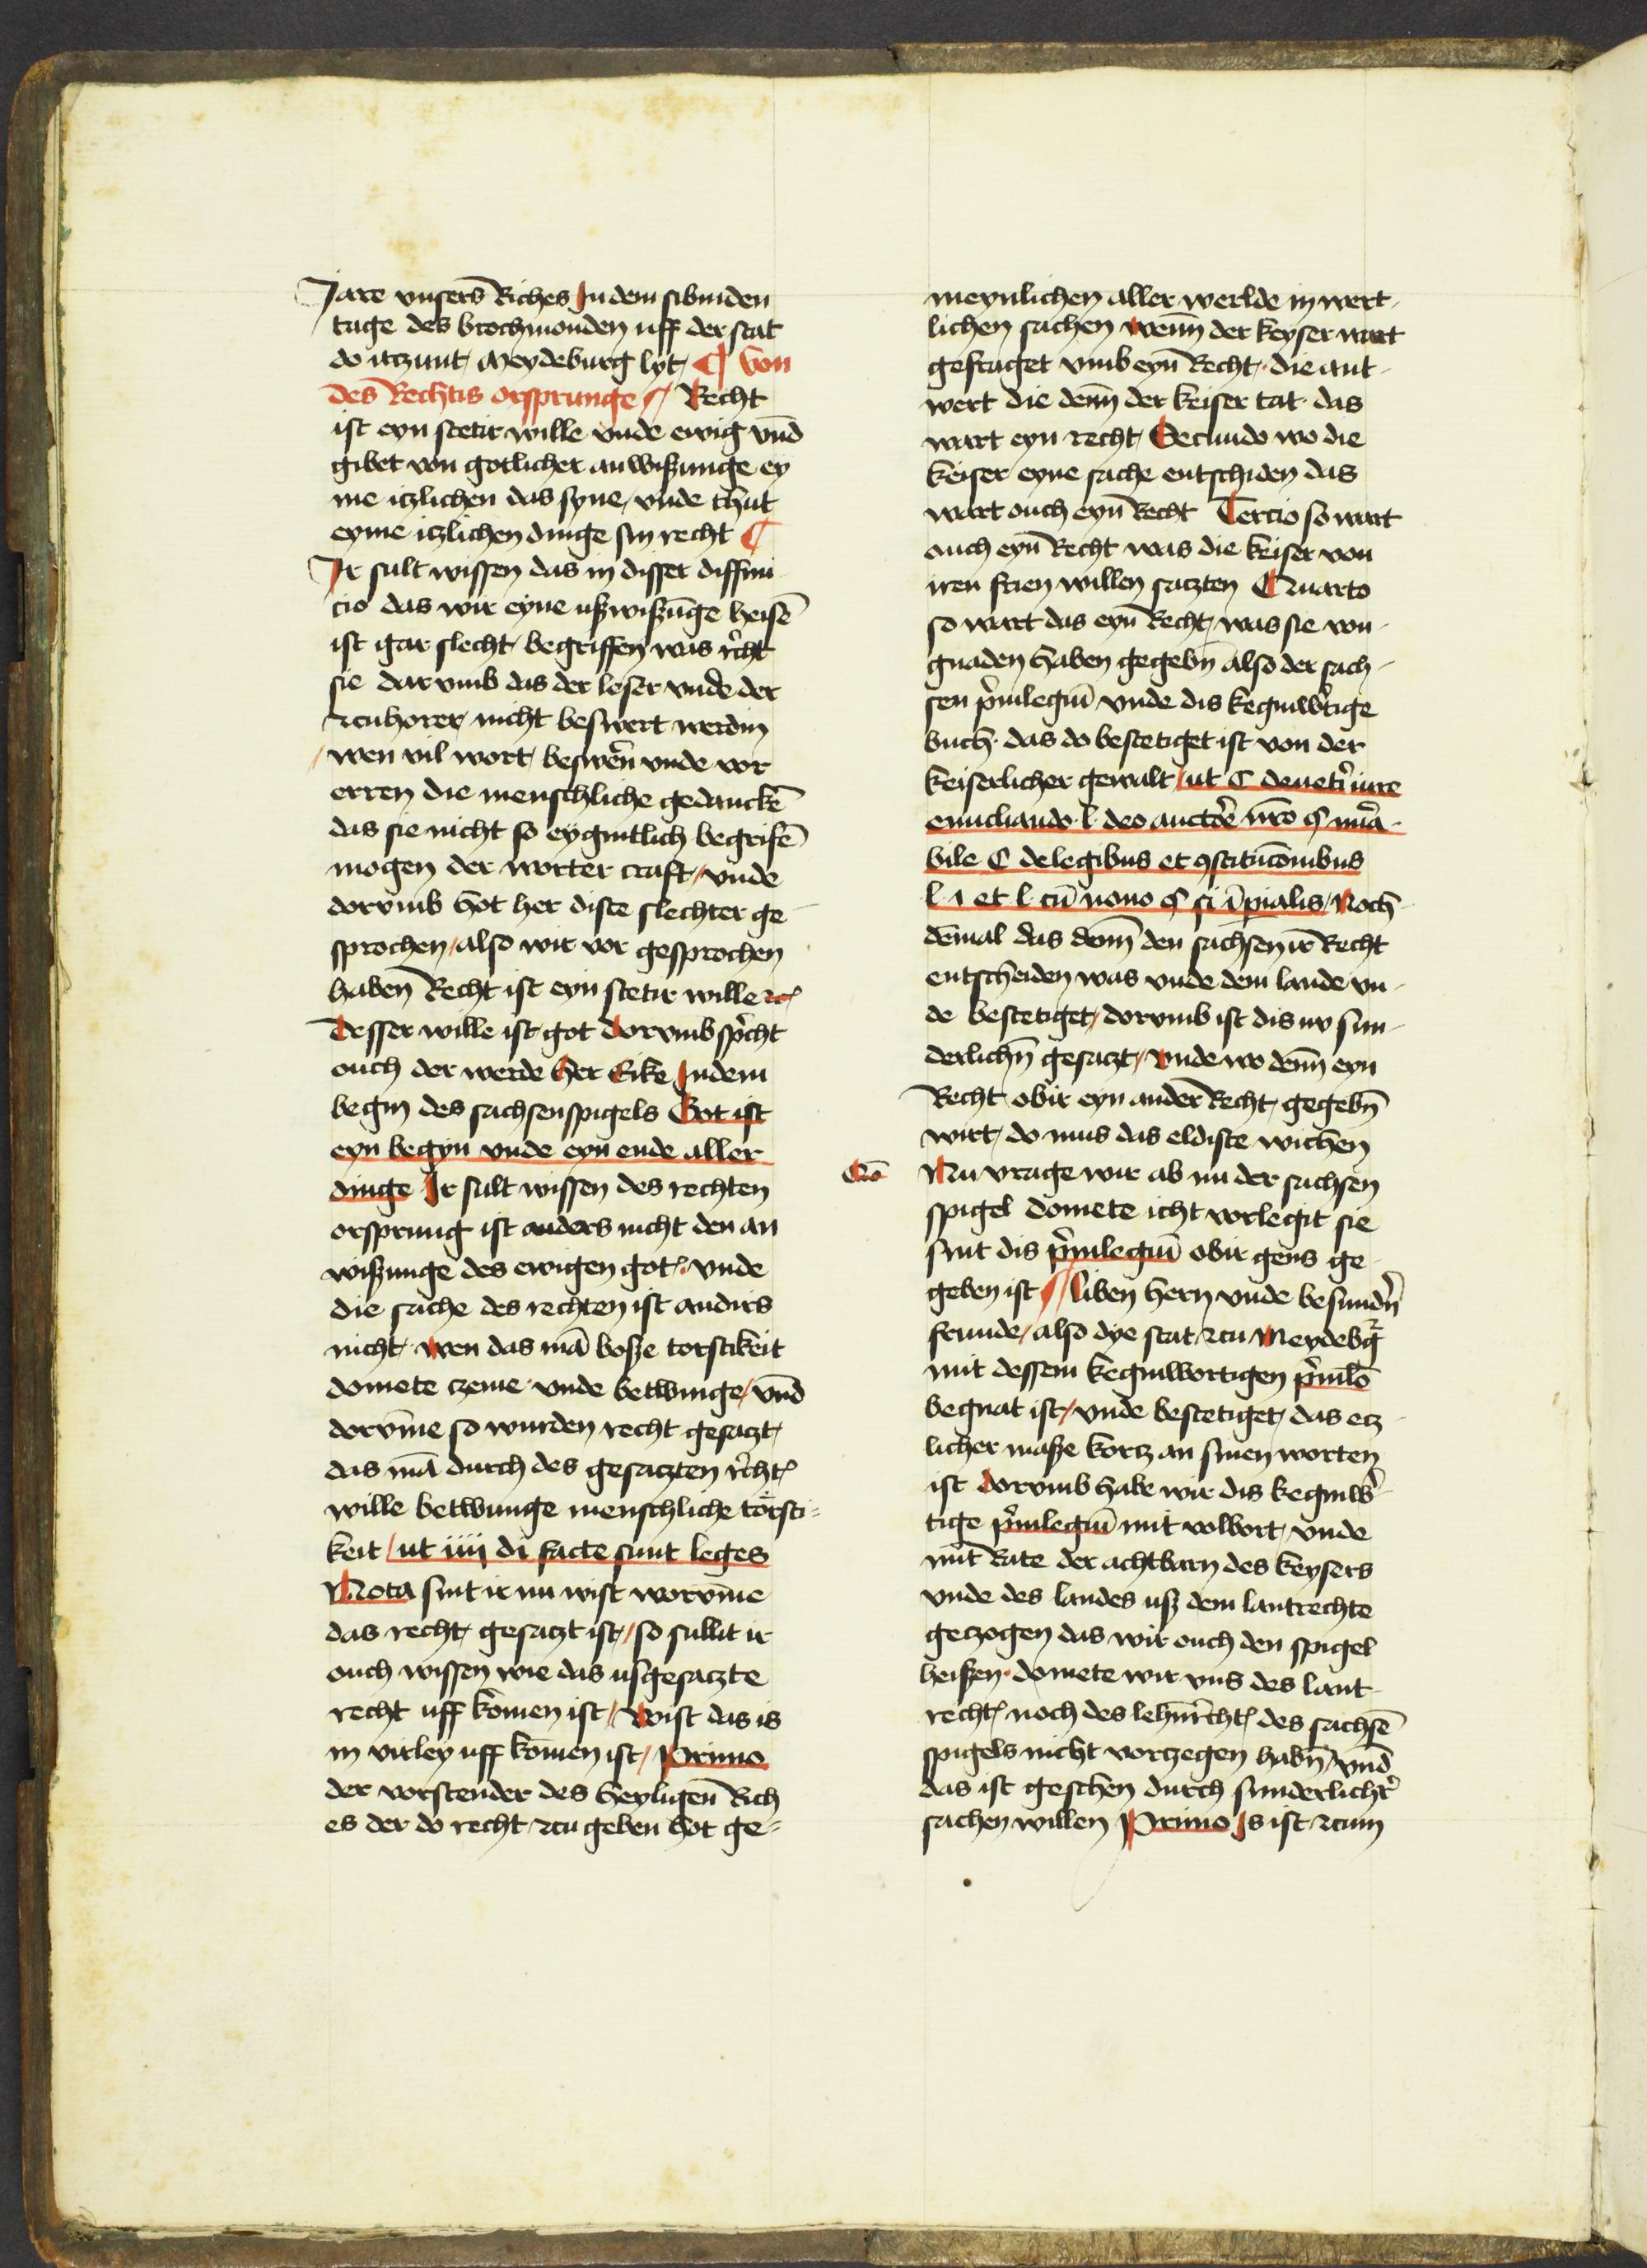 Jare vnsers̄ Riches Jn dem sibinden
tage des brochmonden uff der stat
do itzunt Meydeburg lyt ¶ Von
des Rechtis orsprunge // Recht
ist eyn stetir wille vnde ewig vnd̄
gibet von gotlicher anwißunge ey
me itzlichen das syne / vnde thut
eyme itzlichen dinge sin recht ¶
Jr sult wissen das in disser diffini
cio das wir eyne ußwißūge heisē
ist gar slecht begriffen was r̉cht
sie dar vmb das der leser vnde der
zcuhorer nicht beswert werdin
/ wen vil wort beswēn vnde vor
erren die menschliche gedanckē
das sie nicht so eygintlich begrifē
mogen der worter craft / vnde
dorvmb hot her diste slechter ge
sprochen / also wir vor gesprochen
haben Recht ist eyn stetir wille ꝛc̉
Desser wille ist got dorvmb spr̉cht
ouch der werde her Eike Jn dem
begin des sachsenspigels Got ist
eyn begyn vnde eyn ende aller
dinge Jr sult wissen des rechten
orsprung ist anders nicht den an
wißunge des ewigen got̉ vnde
die sache des rechten ist andirs
nicht wen das mā boße torstikeit
domete czeme vnde betwinge / vnd̄
dorvm̄e so wurden recht gesatzt
das mā durch des gesatzten r̉cht̉
wille betwunge menschliche torsti-
keit / ut iiij di facte sunt leges
Nota sint ir nu wist worvm̄e
das recht gesatzt ist / so sullit ir
ouch wissen wie das usgesatzte
recht uff komen ist / Wist das is
in virley uff komen ist / Primo
der vorstender des heyligen̄ Rich
es der do recht zcu geben hot ge-
meynlichen aller werlde in wert-
lichen sachen wenn̄ der keyser wart
gefraget vmb eyn̄ Recht die ant-
wert die denn̄ der keiser tat das
wart eyn recht Secundo wo die
keiser eyne sache entschiden das
wart ouch eyn̄ Recht Tercio so wart
ouch eyn̄ Recht was die keiser von
iren frien willen satzten Quarto
so wart das eyn̄ Recht was sie von
gnaden haben gegebn̄ also der sach-
sen pr̉uilegiū vnde dis keginw̉tige
buch das do bestetiget ist von der
keiserlicher gewalt / ut C de vetỉ iure
enucliando l deo auctor̉e nr̄o § mir̉a-
bile C de legibus et ꝯstitucōnibus
l 1 et l cū nouo § si īpīalis / Noch
dēmal das denn̄ den sachsen ir Recht
entscheiden was vnde dem lande vn-
de bestetiget / dorvmb ist dis nv sun-
derlichn̄ gesatzt / vnde wo denn̄ eyn
Recht obir eyn ander Recht gegebn̄
wirt do mus das eldiste wichen
Qō Nu vrage wir ab nu der sachsen
spigel domete icht vorlegit sie
sint dis pr̉uilegiū obir gens ge-
geben ist // liben hern vnde besundn̉
frunde / also dye stat zcu Meydebg̉
mit dessem keginwortigen pr̉uilō
begnat ist / vnde bestetiget das etz
licher maße kortz an sinen worten
ist dorvmb habe wir dis keginw̉
tige pr̉uilegiū mit volbort vnde
mit Rate der achtbarn des keysers
vnde des landes uß dem lantrechte
getzogen das wir ouch den spigel
heißen domete wir vns des lant-
recht̉ noch des lehnr̉cht̉ des sachsē
spigels nicht vorczegen habn̄ / vnd̄
das ist geschen durch sunderlichr̉
sachen willen Primo Js ist zcum